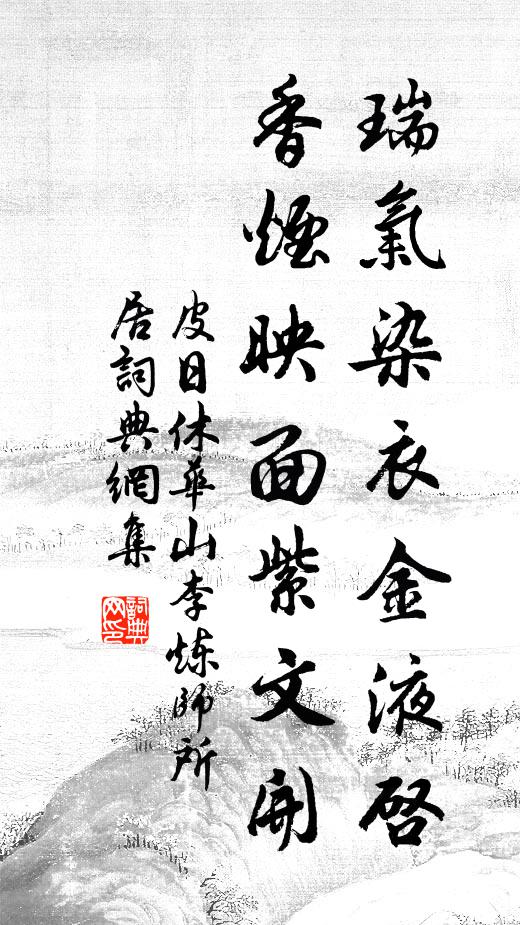 瑞氣染衣金液啓
香煙映面紫文開
皮日休華山李煉師所
居詞典網集
詞典網印